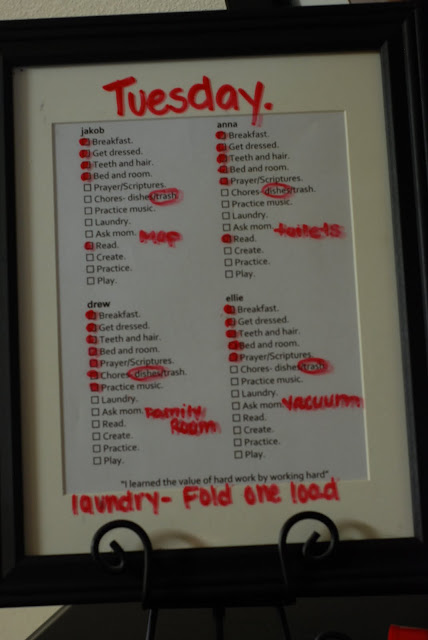 Tuesday.
jakob
Breakfast.
Get dressed.
Teeth and hair.
Bed and room.
Prayer/Scriptures.
Chores- dishes/trash.
Practice music.
Laundry.
Ask mom. mop
Read.
Create.
Practice.
Play.
anna
Breakfast.
Get dressed.
Teeth and hair.
Bed and room.
Prayer/Scriptures.
Chores- dishes/trash.
Practice music.
Laundry.
Ask mom. toilets
Read.
Create.
Practice.
Play.
drew
Breakfast.
Get dressed.
Teeth and hair.
Bed and room.
Prayer/Scriptures.
Chores- dishes/trash.
Practice music.
Laundry.
Ask mom. Family
Read. Room
Create.
Practice.
Play.
ellie
Breakfast.
Get dressed.
Teeth and hair.
Bed and room.
Prayer/Scriptures.
Chores- dishes/trash.
Practice music.
Laundry.
Ask mom. vacuum
Read.
Create.
Practice.
Play.
"I learned the value of hard work by working hard"
laundry- Fold one load